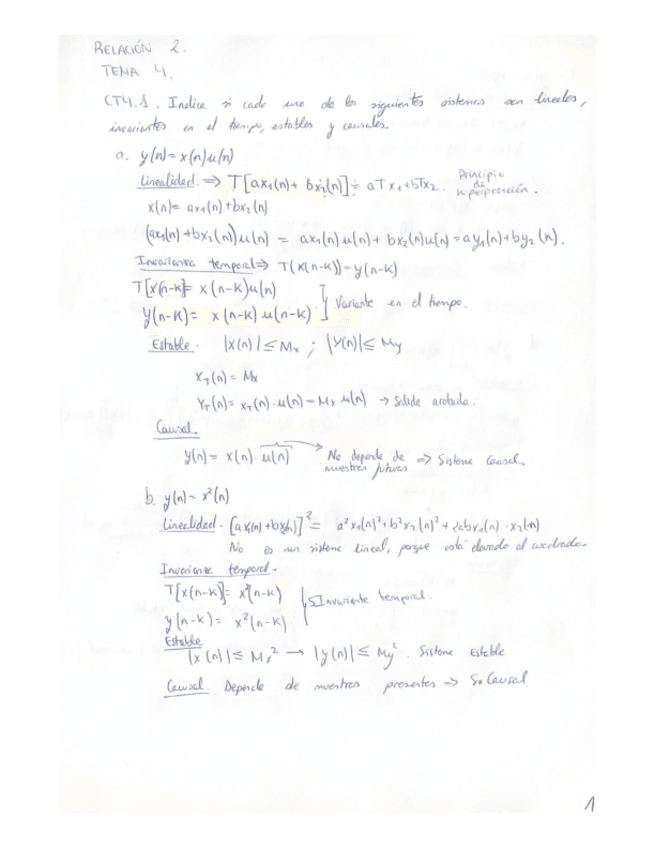 RELACIÓN 2.
TEMA 4.
CT4.1. Indice si cada uno de los siguientes sistemas son lineales,
invariantes en el tiempo, estables y causales.
a. y(n)=x(n)u(n)
Linealidad. ⇒ T[ax₁(n)+ bx₂(n)] = aTx₁+bTx₂. Principio de superposición.
x(n)= ax₁(n)+bx₂(n)
(ax₁(n)+bx₂(n))u(n) = ax₁(n)u(n)+ bx₂(n)u(n)=ay₁(n)+by₂(n).
Invarianza temporal ⇒ T(x(n-k))=y(n-k)
T[x(n-k]= x(n-k)u(n)
y(n-k)= x(n-k) u(n-k) } Variante en el tiempo.
Estable. |x(n)|≤Mx ; |y(n)|≤My
x_T(n)= Mx
y_T(n)= x_T(n)·u(n)=Mx u(n) → Salida acotada.
Causal.
y(n)= x(n)·u(n) → No depende de muestras futuras ⇒ Sistema Causal.
b. y(n)=x²(n)
Linealidad. [ax₁(n)+bx₂(n)]² = a²x₁(n)²+b²x₂(n)²+2abx₁(n)·x₂(n)
No es un sistema lineal, porque está elevado al cuadrado.
Invarianza temporal.
T[x(n-k)]= x²(n-k)
y(n-k)= x²(n-k) } SInvariante temporal.
Estable
|x(n)|≤Mx² → |y(n)|≤My². Sistema Estable
Causal. Depende de muestras presentes ⇒ S. Causal
1